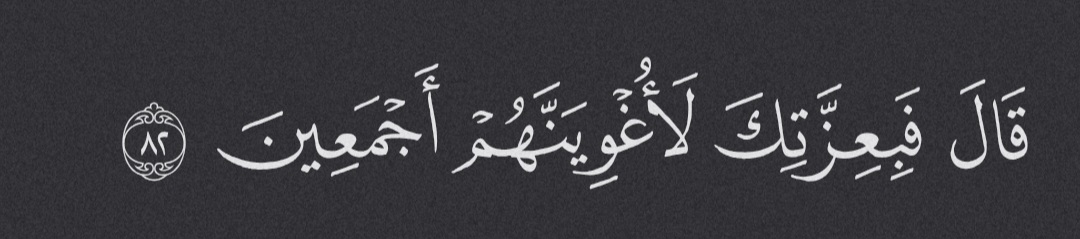 قَالَ فَبِعِزَّتِكَ لَأُغْوِيَنَّهُمْ أَجْمَعِينَ ٨٢